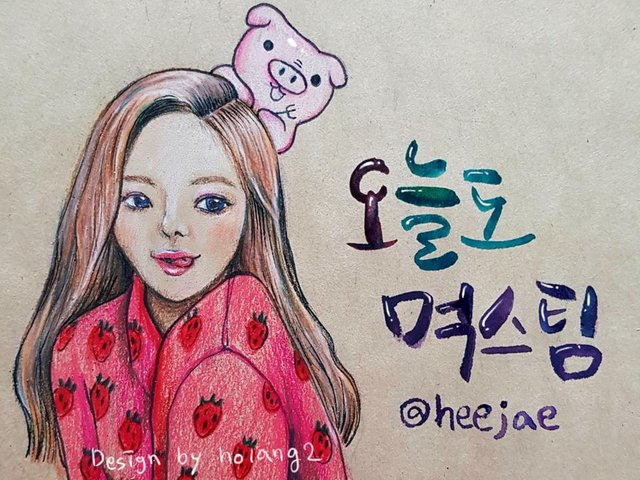 오늘도
멱스팀
@heejae
Design by nolang2